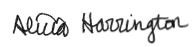 Alicia Harrington